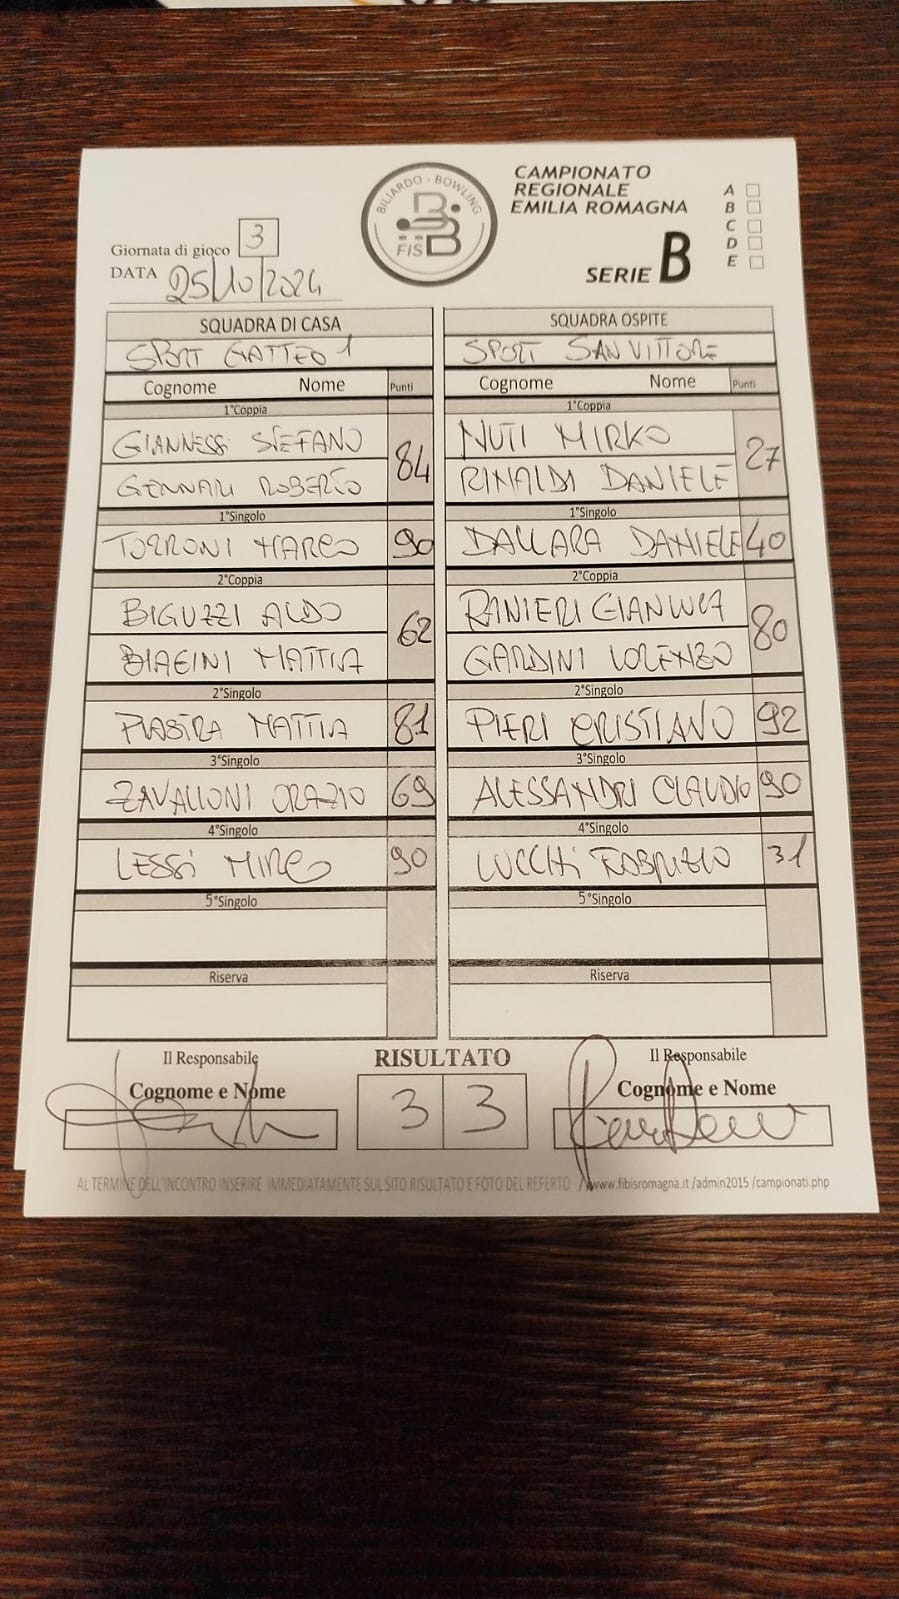 BILIARDO - BOWLING
FISBB
CAMPIONATO
REGIONALE
EMILIA ROMAGNA
SERIE B
A
B
C
D
E
Giornata di gioco 3
DATA 25/10/2024
SQUADRA DI CASA
SPORT GATTEO 1
Cognome Nome Punti
1°Coppia
GIANNESSI STEFANO
GENNARI ROBERTO
84
1°Singolo
TORRONI MARCO 90
2°Coppia
BIGUZZI ALDO
BIAGINI MATTIA
62
2°Singolo
PIASTRA MATTIA 81
3°Singolo
ZAVALLONI ORAZIO 69
4°Singolo
LESSI MIRCO 90
5°Singolo
Riserva
SQUADRA OSPITE
SPORT SAN VITTORE
Cognome Nome Punti
1°Coppia
NUTI MIRKO
RINALDI DANIELE
27
1°Singolo
DALLARA DANIELE 40
2°Coppia
RANIERI GIANLUCA
GARDINI LORENZO
80
2°Singolo
PIERI CRISTIANO 92
3°Singolo
ALESSANDRI CLAUDIO 90
4°Singolo
LUCCHI FABRIZIO 31
5°Singolo
Riserva
Il Responsabile
Cognome e Nome
RISULTATO
3 3
Il Responsabile
Cognome e Nome
AL TERMINE DELL'INCONTRO INSERIRE IMMEDIATAMENTE SUL SITO RISULTATO E FOTO DEL REFERTO /www.fibisromagna.it /admin2015 /campionati.php